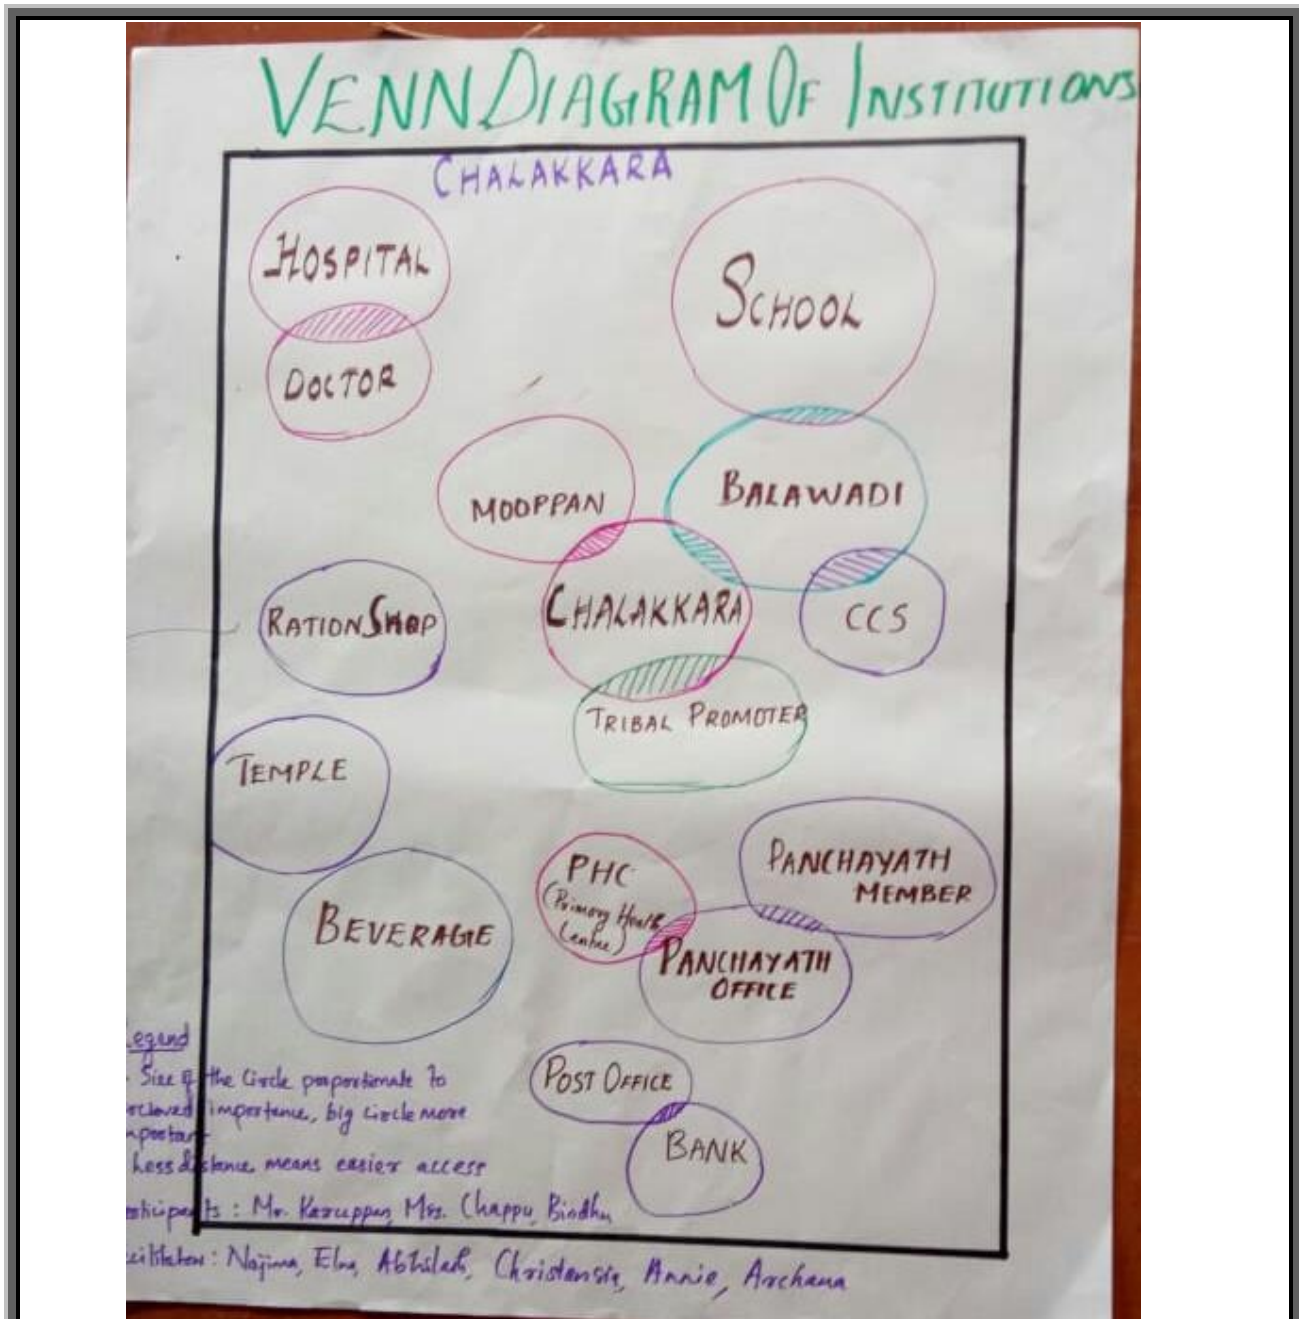 VENN DIAGRAM OF INSTITUTIONS
CHALAKKARA
HOSPITAL
SCHOOL
DOCTOR
MOOPPAN
BALAWADI
RATION SHOP
CHALAKKARA
CCS
TRIBAL PROMOTER
TEMPLE
PHC
(Primary Health
Centre)
PANCHAYATH
MEMBER
BEVERAGE
PANCHAYATH
OFFICE
POST OFFICE
BANK
egend
Size of the Circle proportionate to
importance, big circle more
mportant
Less distance means easier access
rticipants : Mr. Karuppan, Mrs. Chappu, Bindhu
cilitators : Najima, Elna, Abhilash, Christansia, Annie, Archana